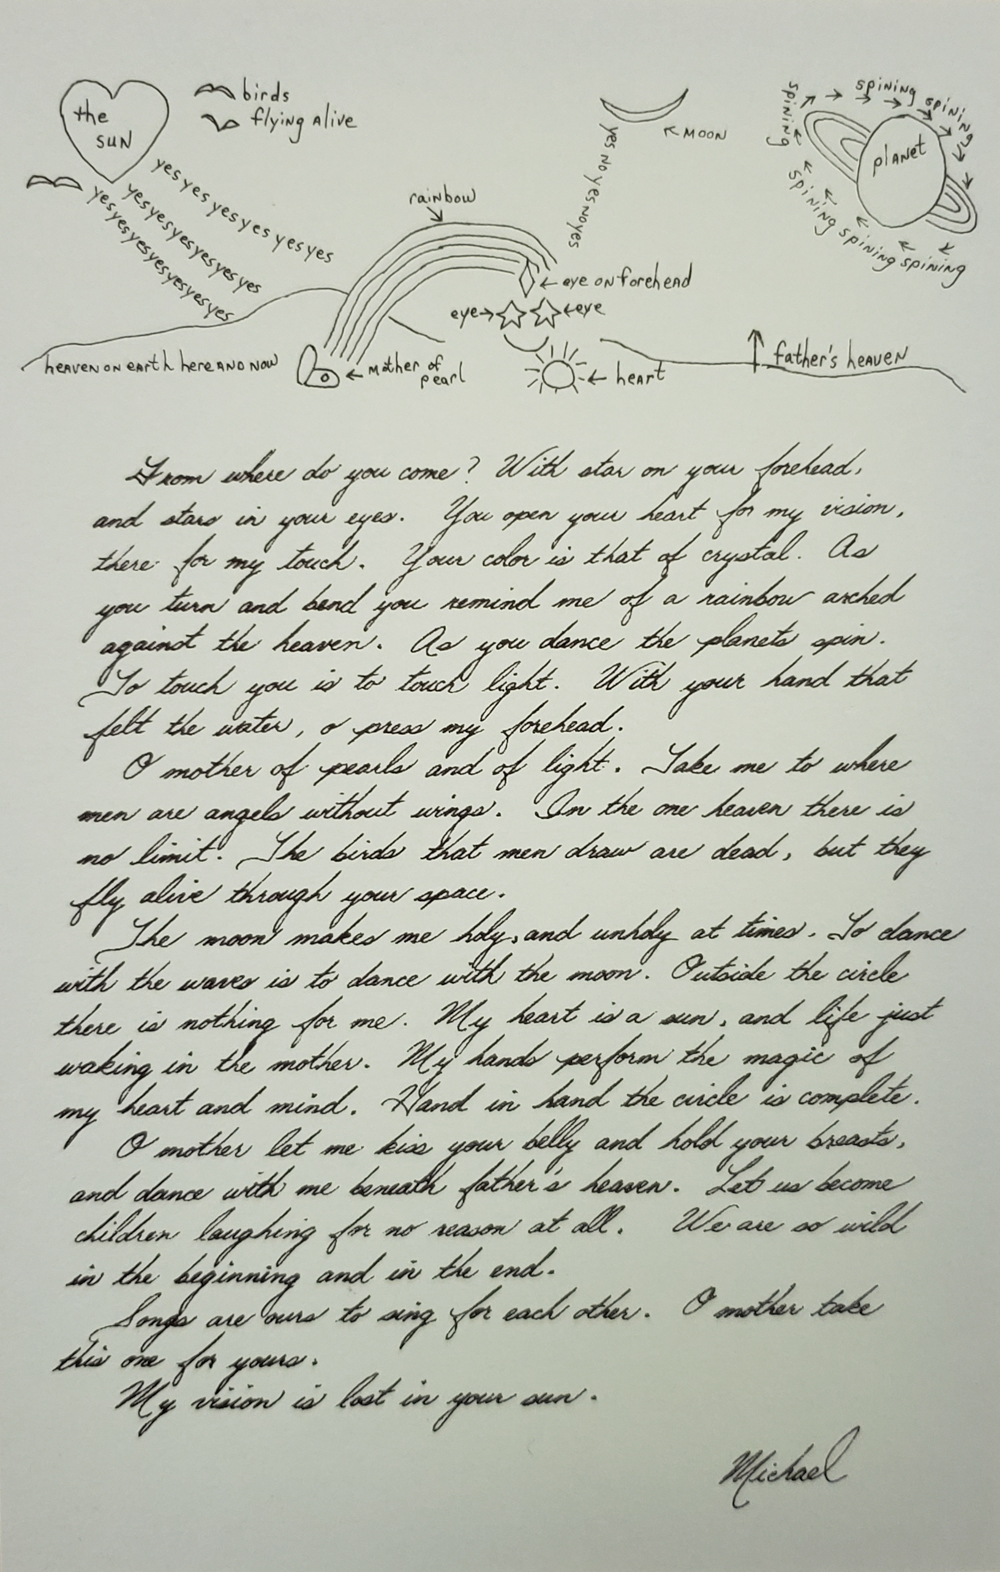 the
SUN
birds
flying alive
yes yes yes yes yes yes
yesyesyesyesyesyes
yesyesyesyesyesyesyes
rainbow
MOON
yes no yes no yes
spining
spining spining
planet
spining spining spining
eye on forehead
eye
eye
heaven on earth here and now
Mother of
pearl
heart
father's heaven
From where do you come? With star on your forehead,
and stars in your eyes. You open your heart for my vision,
there for my touch. Your color is that of crystal. As
you turn and bend you remind me of a rainbow arched
against the heaven. As you dance the planets spin.
To touch you is to touch light. With your hand that
felt the water, o press my forehead.
O mother of pearls and of light. Take me to where
men are angels without wings. In the one heaven there is
no limit. The birds that men draw are dead, but they
fly alive through your space.
The moon makes me holy, and unholy at times. To dance
with the waves is to dance with the moon. Outside the circle
there is nothing for me. My heart is a sun, and life just
waking in the mother. My hands perform the magic of
my heart and mind. Hand in hand the circle is complete.
O mother let me kiss your belly and hold your breasts,
and dance with me beneath father's heaven. Let us become
children laughing for no reason at all. We are so wild
in the beginning and in the end.
Songs are ours to sing for each other. O mother take
this one for yours.
My vision is lost in your sun.
Michael